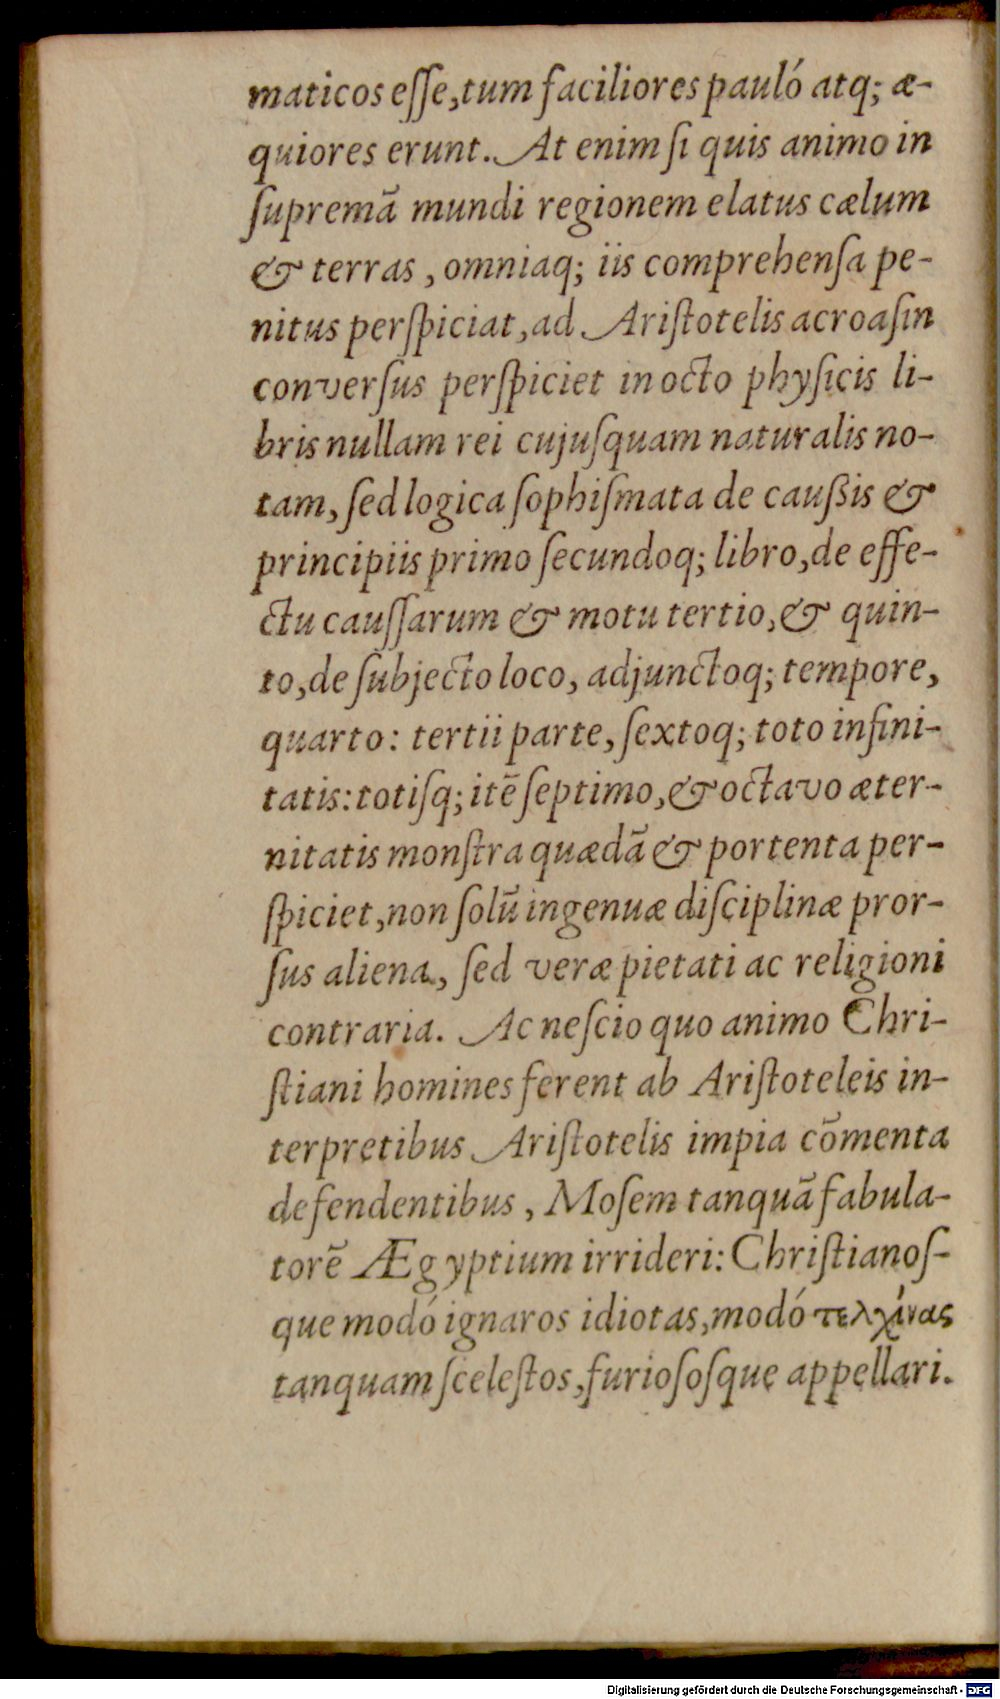 maticos eſſe, tum faciliores pauló atq; æ-
quiores erunt. At enim ſi quis animo in
ſupremā mundi regionem elatus cælum
& terras, omniaq; iis comprehenſa pe-
nitus perſpiciat, ad Ariſtotelis acroaſin
converſus perſpiciet in octo phyſicis li-
bris nullam rei cujuſquam naturalis no-
tam, ſed logica ſophiſmata de cauſsis &
principiis primo ſecundoq; libro, de effe-
ctu cauſſarum & motu tertio, & quin-
to, de ſubjecto loco, adjunctoq; tempore,
quarto: tertii parte, ſextoq; toto infini-
tatis: totiſq; itē ſeptimo, & octavo æter-
nitatis monſtra quædā & portenta per-
ſpiciet, non ſolū ingenuæ diſciplinæ pror-
ſus aliena, ſed veræ pietati ac religioni
contraria. Ac neſcio quo animo Chri-
ſtiani homines ferent ab Ariſtoteleis in-
terpretibus Ariſtotelis impia cōmenta
defendentibus, Moſem tanquā fabula-
torē Ægyptium irrideri: Chriſtianoſ-
que modó ignaros idiotas, modó τελχίνας
tanquam ſceleſtos, furioſoſque appellari.
Digitalisierung gefördert durch die Deutsche Forschungsgemeinschaft - DFG